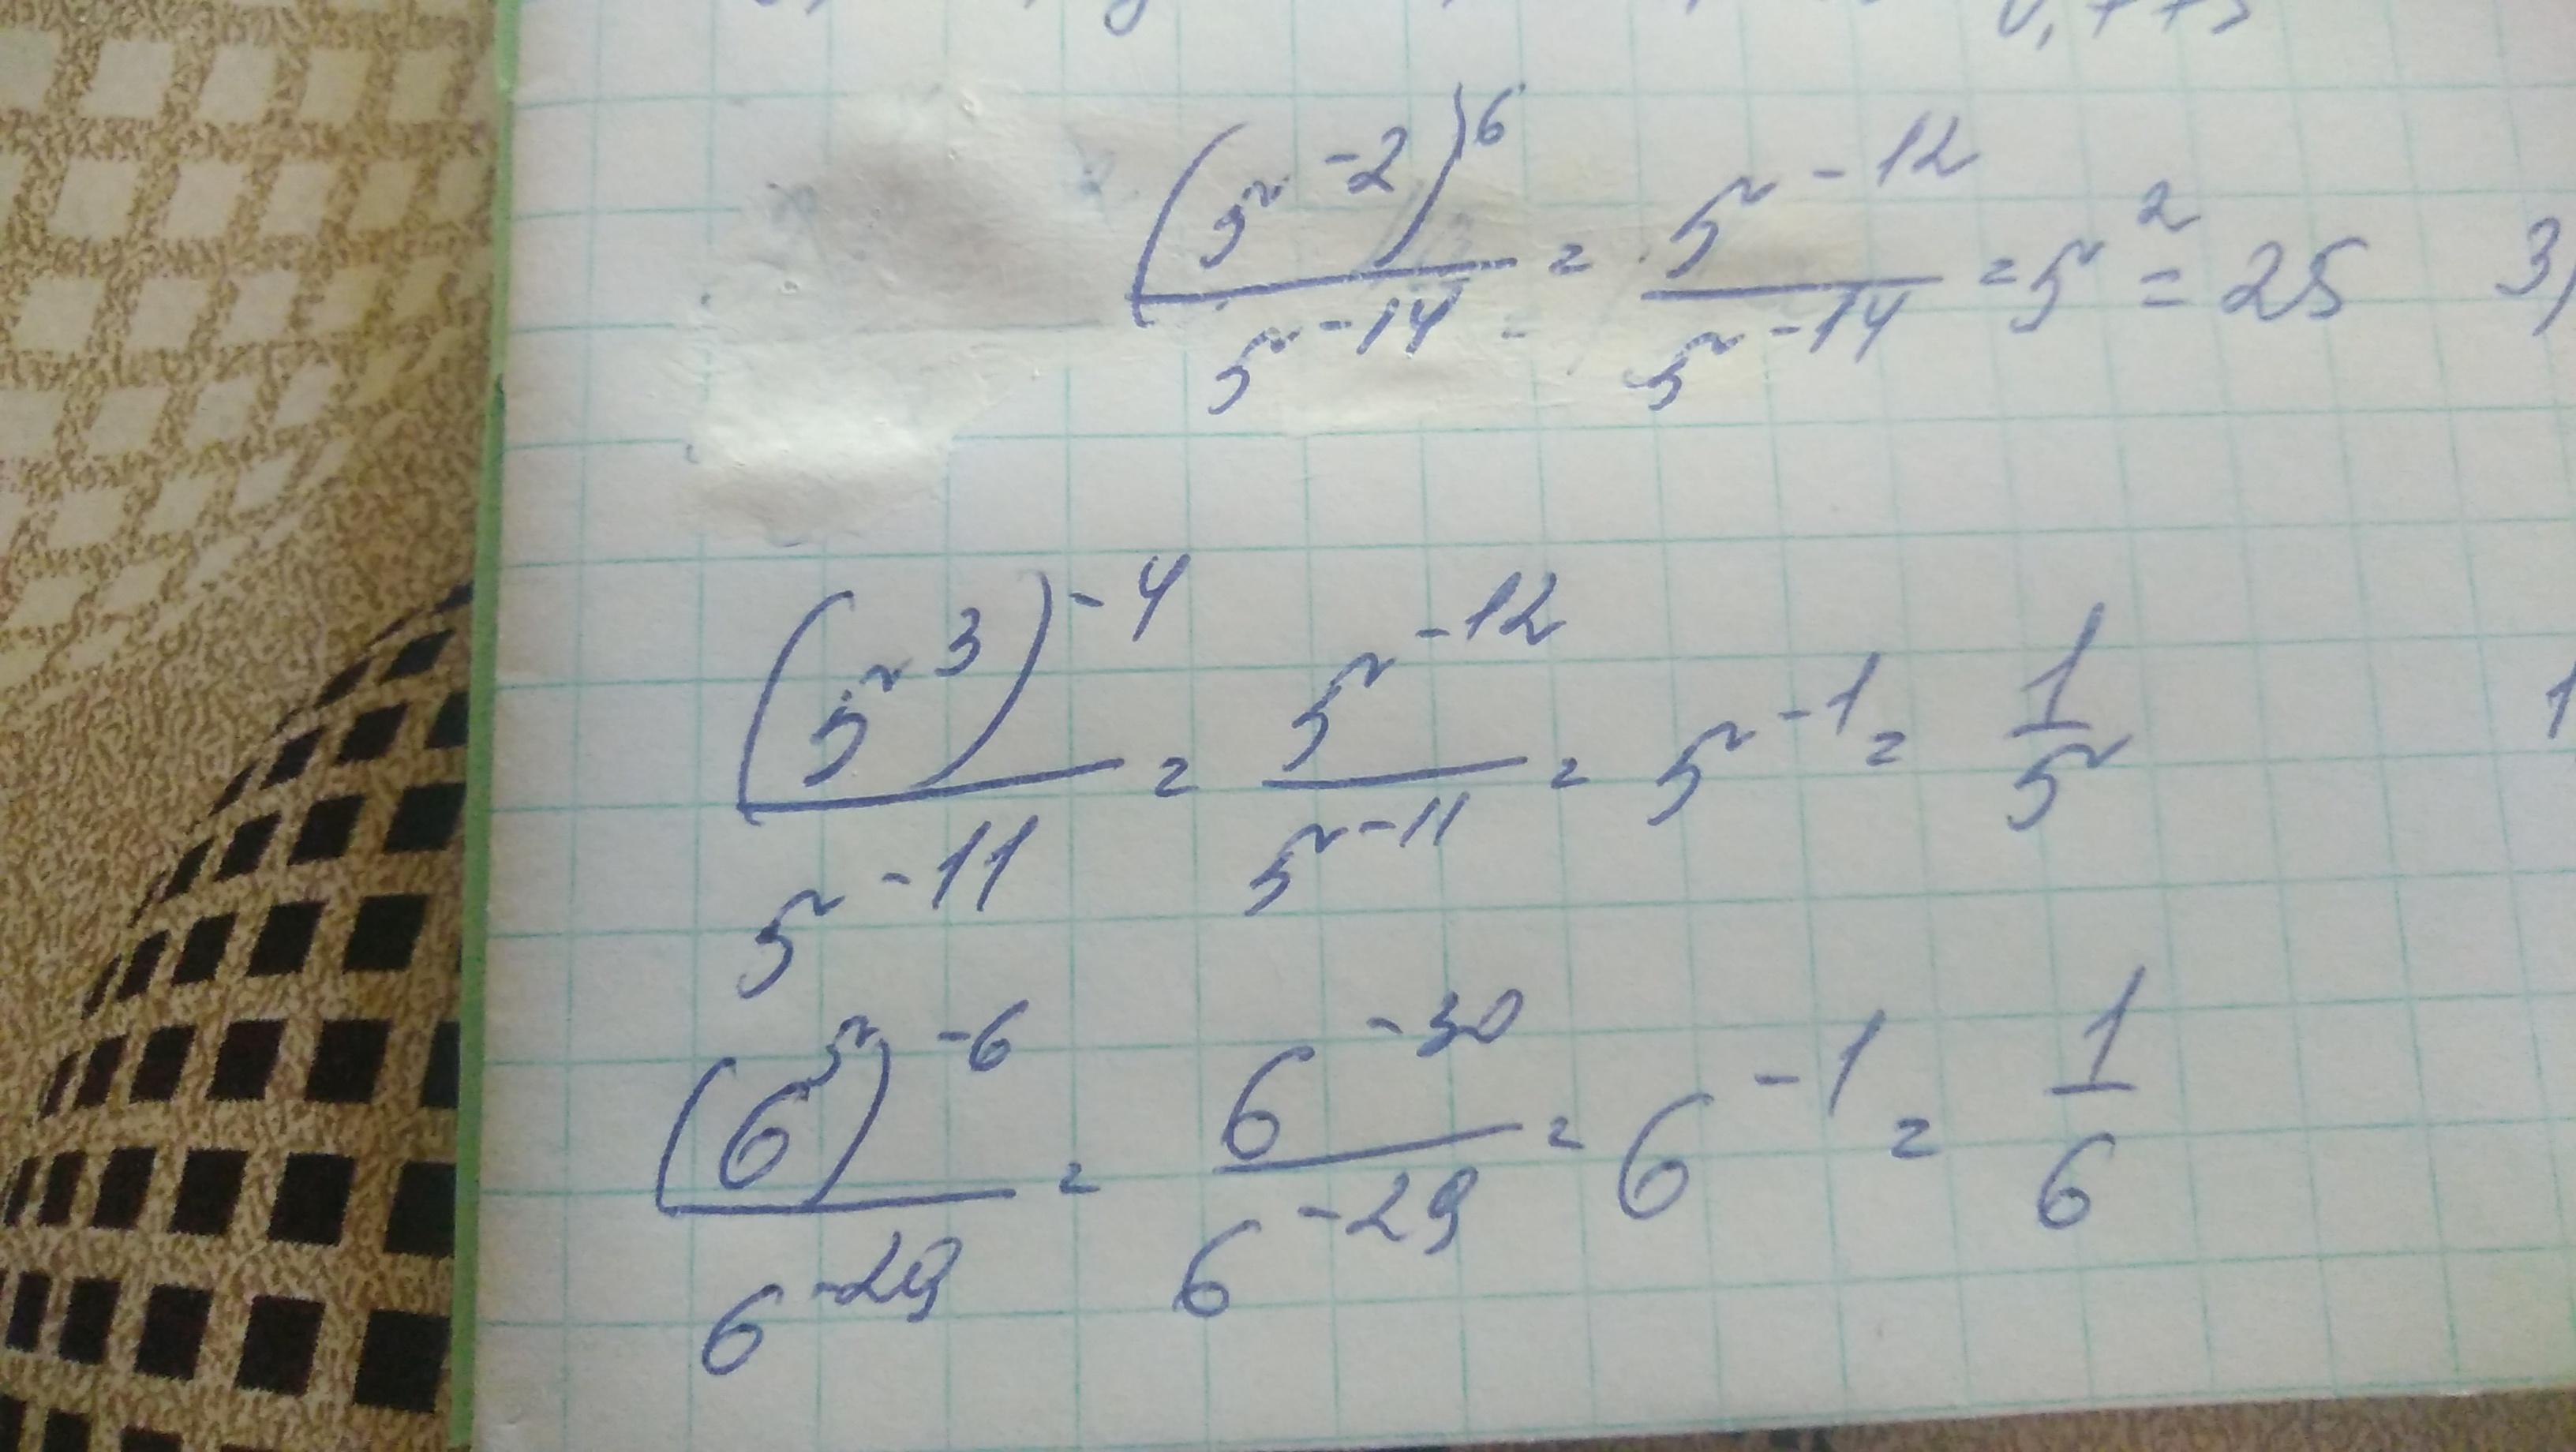 (5^-2)^6 / 5^-14 = 5^-12 / 5^-14 = 5^2 = 25 3)
(5^3)^-4 / 5^-11 = 5^-12 / 5^-11 = 5^-1 = 1/5
(6^5)^-6 / 6^-29 = 6^-30 / 6^-29 = 6^-1 = 1/6